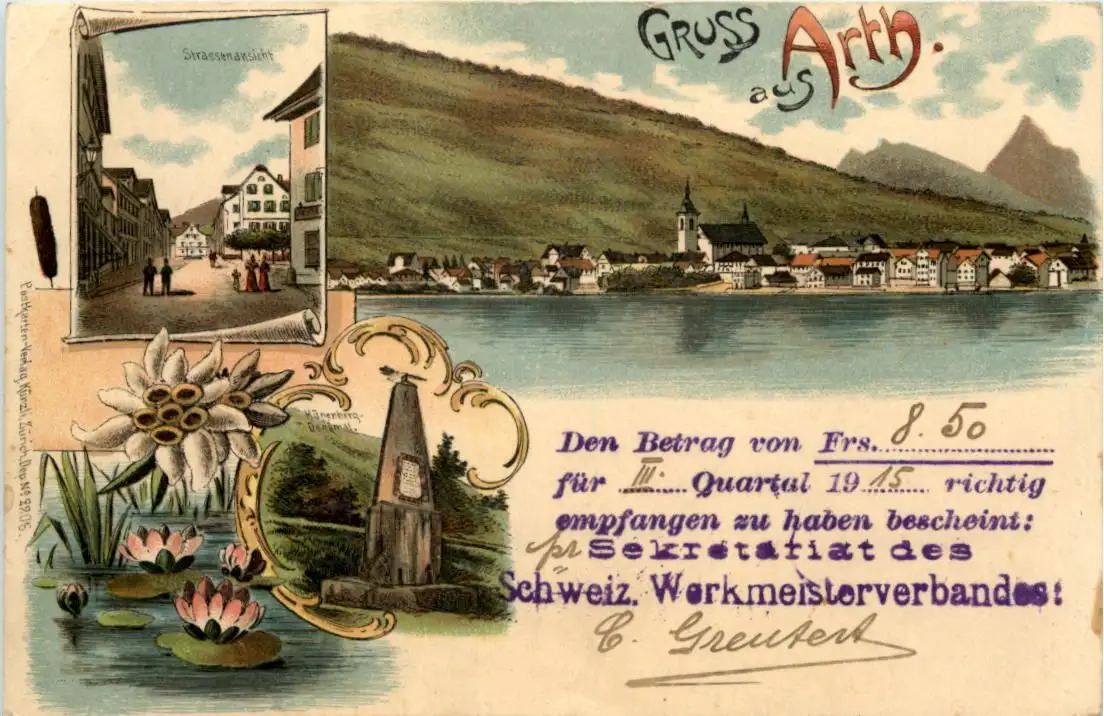 GRUSS
aus Arth.
Strassenansicht
Hünenberg-
Denkmal.
Postkarten-Verlag Künzli, Zürich, Dep. No 2906.
Den Betrag von Frs. 8.50
für III. Quartal 1915 richtig
empfangen zu haben bescheint:
pr Sekretariat des
Schweiz. Werkmeisterverbandes:
C. Greutert